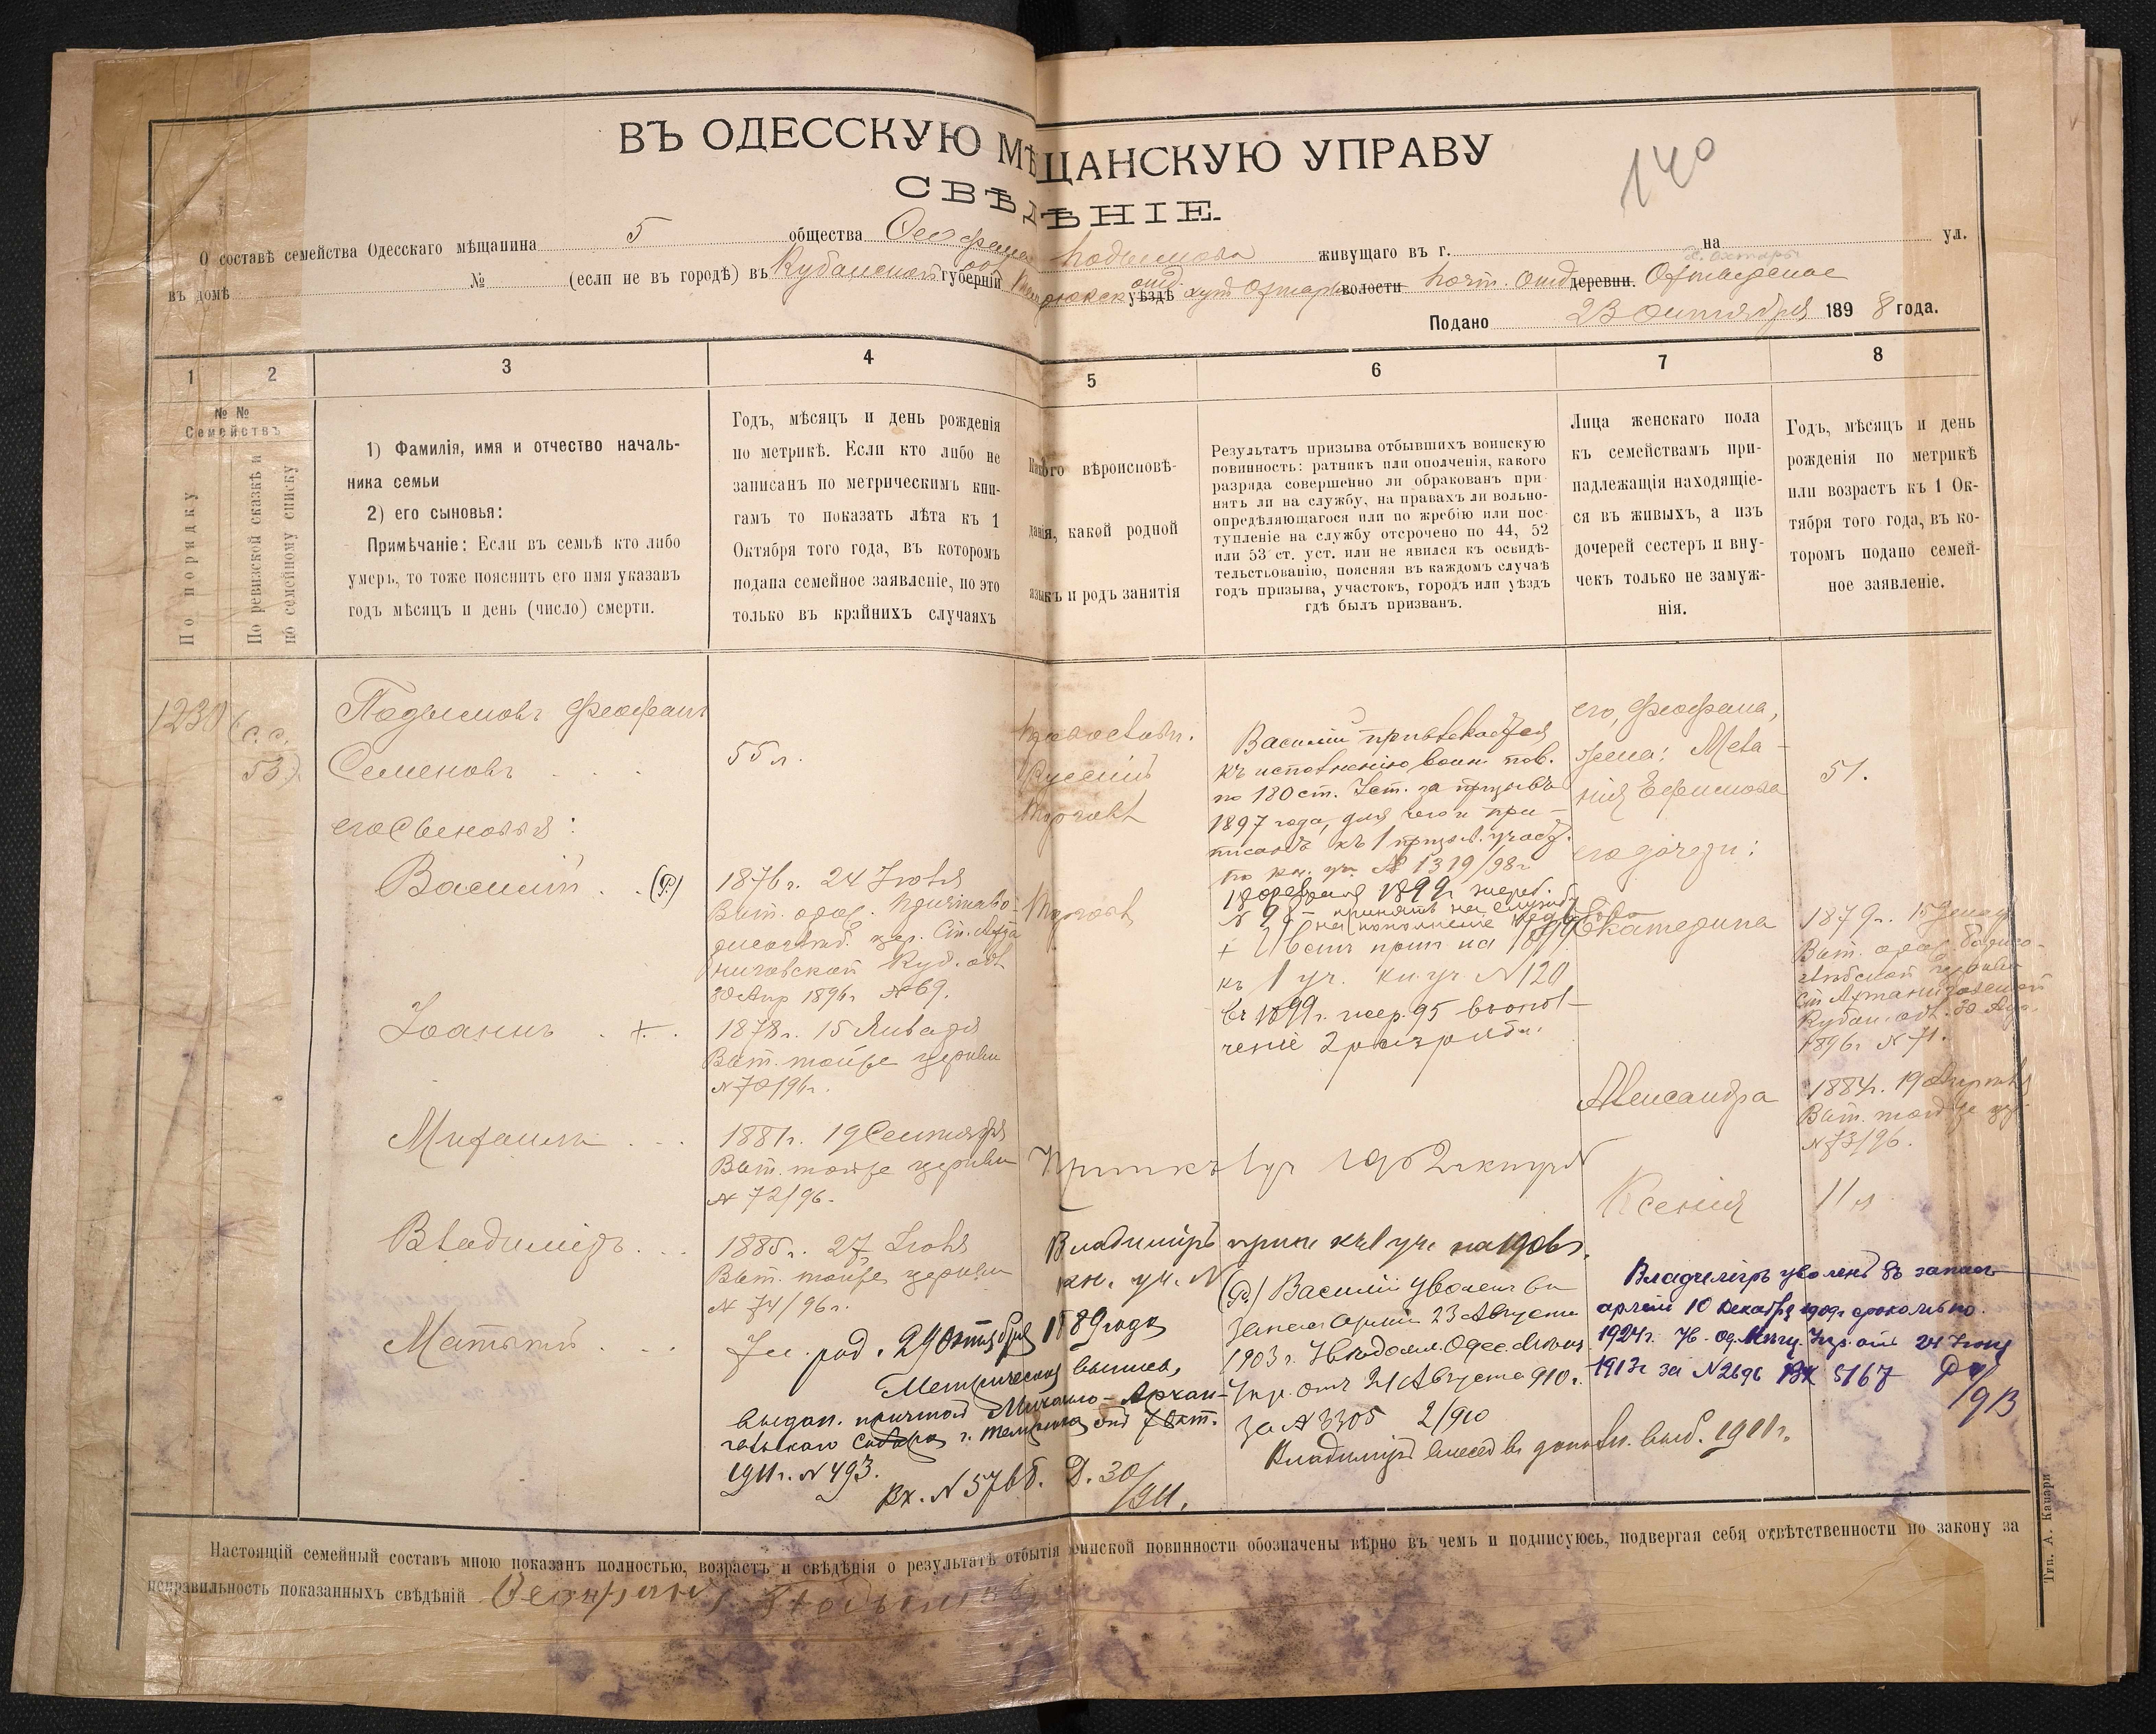 140
ВЪ ОДЕССКУЮ МѢЩАНСКУЮ УПРАВУ
СВѢДѢНІЕ.
О составѣ семейства Одесскаго мѣщанина 5 общества Феофана Подымова живущаго въ г. на ул.
въ домѣ № (если не въ городѣ) въ Кубанской губерніи обл. уѣздѣ отд. волости почт. отд. деревни.
Подано 23 Октября 1898 года.
1 2 3 4 5 6 7 8
№ № Семействъ
По порядку
По ревизской сказкѣ и по семейному списку
1) Фамилія, имя и отчество началь-
ника семьи
2) его сыновья:
Примѣчаніе: Если въ семьѣ кто либо
умеръ, то тоже пояснить его имя указавъ
годъ мѣсяцъ и день (число) смерти.
Годъ, мѣсяцъ и день рожденія
по метрикѣ. Если кто либо не
записанъ по метрическимъ кни-
гамъ то показать лѣта къ 1
Октября того года, въ которомъ
подана семейное заявленіе, но это
только въ крайнихъ случаяхъ
Какого вѣроисповѣ-
данія, какой родной
языкъ и родъ занятія
Результатъ призыва отбывшихъ воинскую
повинность: ратникъ или ополченія, какого
разряда совершенно ли обракованъ при-
нятъ ли на службу, на правахъ ли вольно-
опредѣляющагося или по жребію или пос-
тупленіе на службу отсрочено по 44, 52
или 53 ст. уст. или не явился къ освидѣ-
тельствованію, поясняя въ каждомъ случаѣ
годъ призыва, участокъ, городъ или уѣздъ
гдѣ былъ призванъ.
Лица женскаго пола
къ семействамъ при-
надлежащія находящіе-
ся въ живыхъ, а изъ
дочерей сестеръ и вну-
чекъ только не замуж-
нія.
Годъ, мѣсяцъ и день
рожденія по метрикѣ
или возрастъ къ 1 Ок-
тября того года, въ ко-
торомъ подано семей-
ное заявленіе.
1230
(с.с.
53)
Подымовъ Феофанъ
Семеновъ
его сыновья:
Василій (Р.)
Іоаннъ +
Михаилъ
Владиміръ
Матвѣй
55 л.
1876 г. 24 Іюля
30 Апр 1896 г. № 69.
1878 г. 15 Января
Вып. тойже церкви
№ 70/96 г.
1881 г. 19 Сентября
Вып. тойже церкви
№ 72/96.
1885 г. 27 Іюля
Вып. тойже церкви
№ 74/96 г.
род. 29 Октября 1889 года
Метрическая выпись
выдан. причтомъ Михаило-Архан-
гельскаго Собора г. Темрюка отъ 7 окт.
1911 г. № 493.
Вх. № 5766. Д. 30/911.
Православн.
Русскій
Торговл
Торговл
Василій привлекается
къ исполненію воин. пов.
по 180 ст. Уст. за призывъ
1897 года, для чего и при-
писанъ къ 1 призыв. участ.
по кн. уч. № 1319/98 г.
18 февраля 1899 г. жереб.
принятъ на службу
на пополненіе
къ 1 уч. кн. уч. № 120
въ 1899 г. жер. 95 въ опол-
ченіе 2 разряда.
Владиміръ прип. къ 1 уч. на 1906 г.
кн. уч. №
(Р.) Василій уволенъ въ
запасъ Арміи 23 Августа
1903 г. Увѣдомл. Одес. Мѣщ.
Упр. отъ 21 Августа 910 г.
за № 3305 2/910
Владиміръ внесенъ въ дополн. 1911 г.
его, Феофана,
жена: Мела-
нія Ефимова
его дочери:
Екатерина
Александра
Ксенія
51.
1879 г.
Ст. Ахтанизовской
1896 г. № 71.
1884 г. 19 Апрѣля
Вып. той же цер.
№ 73/96.
11 л
Владиміръ уволенъ въ запасъ
арміи 10 Декабря 1909 г. срокомъ по
1924 г. Ув. Од. Мѣщ. Упр. отъ 24 Іюня
1913 г. за № 2696 Вх 5167
Настоящій семейный составъ мною показанъ полностью, возрастъ и свѣдѣнія о результатѣ отбытія воинской повинности обозначены вѣрно въ чемъ и подписуюсь, подвергая себя отвѣтственности по закону за
неправильность показанныхъ свѣдѣній Феофанъ Подымовъ
Тип. А. Канари